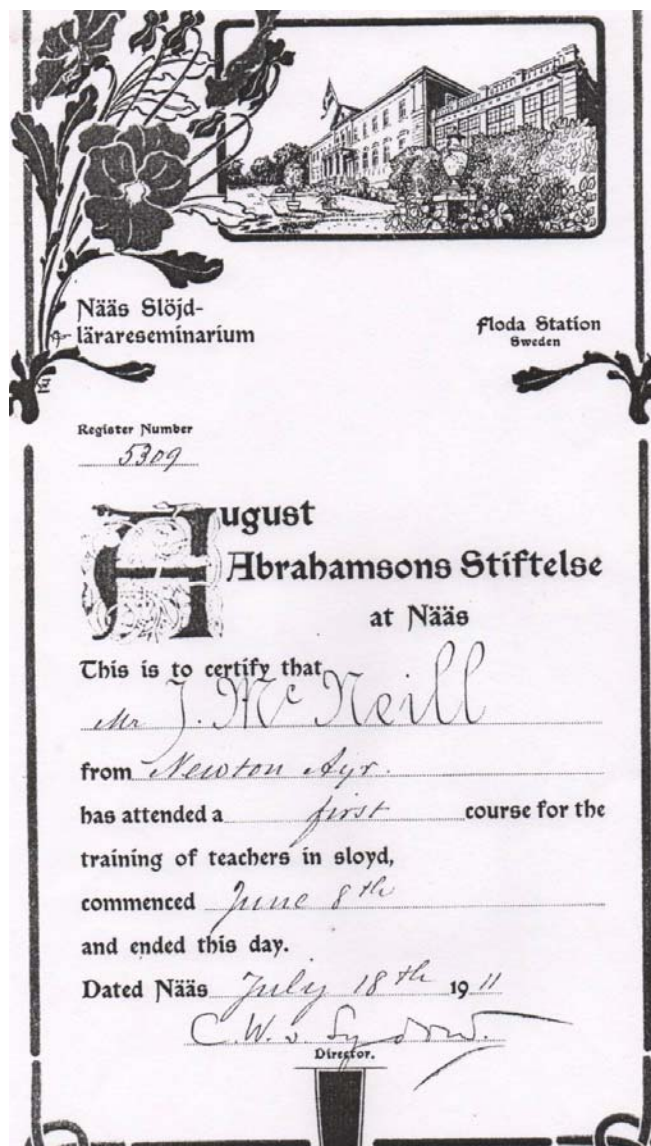 Nääs Slöjd-
lärareseminarium
Floda Station
Sweden
Register Number
5309
August
Abrahamsons Stiftelse
at Nääs
This is to certify that
Mr J. McNeill
from Newton Ayr.
has attended a first course for the
training of teachers in sloyd,
commenced June 8th
and ended this day.
Dated Nääs July 18th 1911
C. W. v. Sydow.
Director.